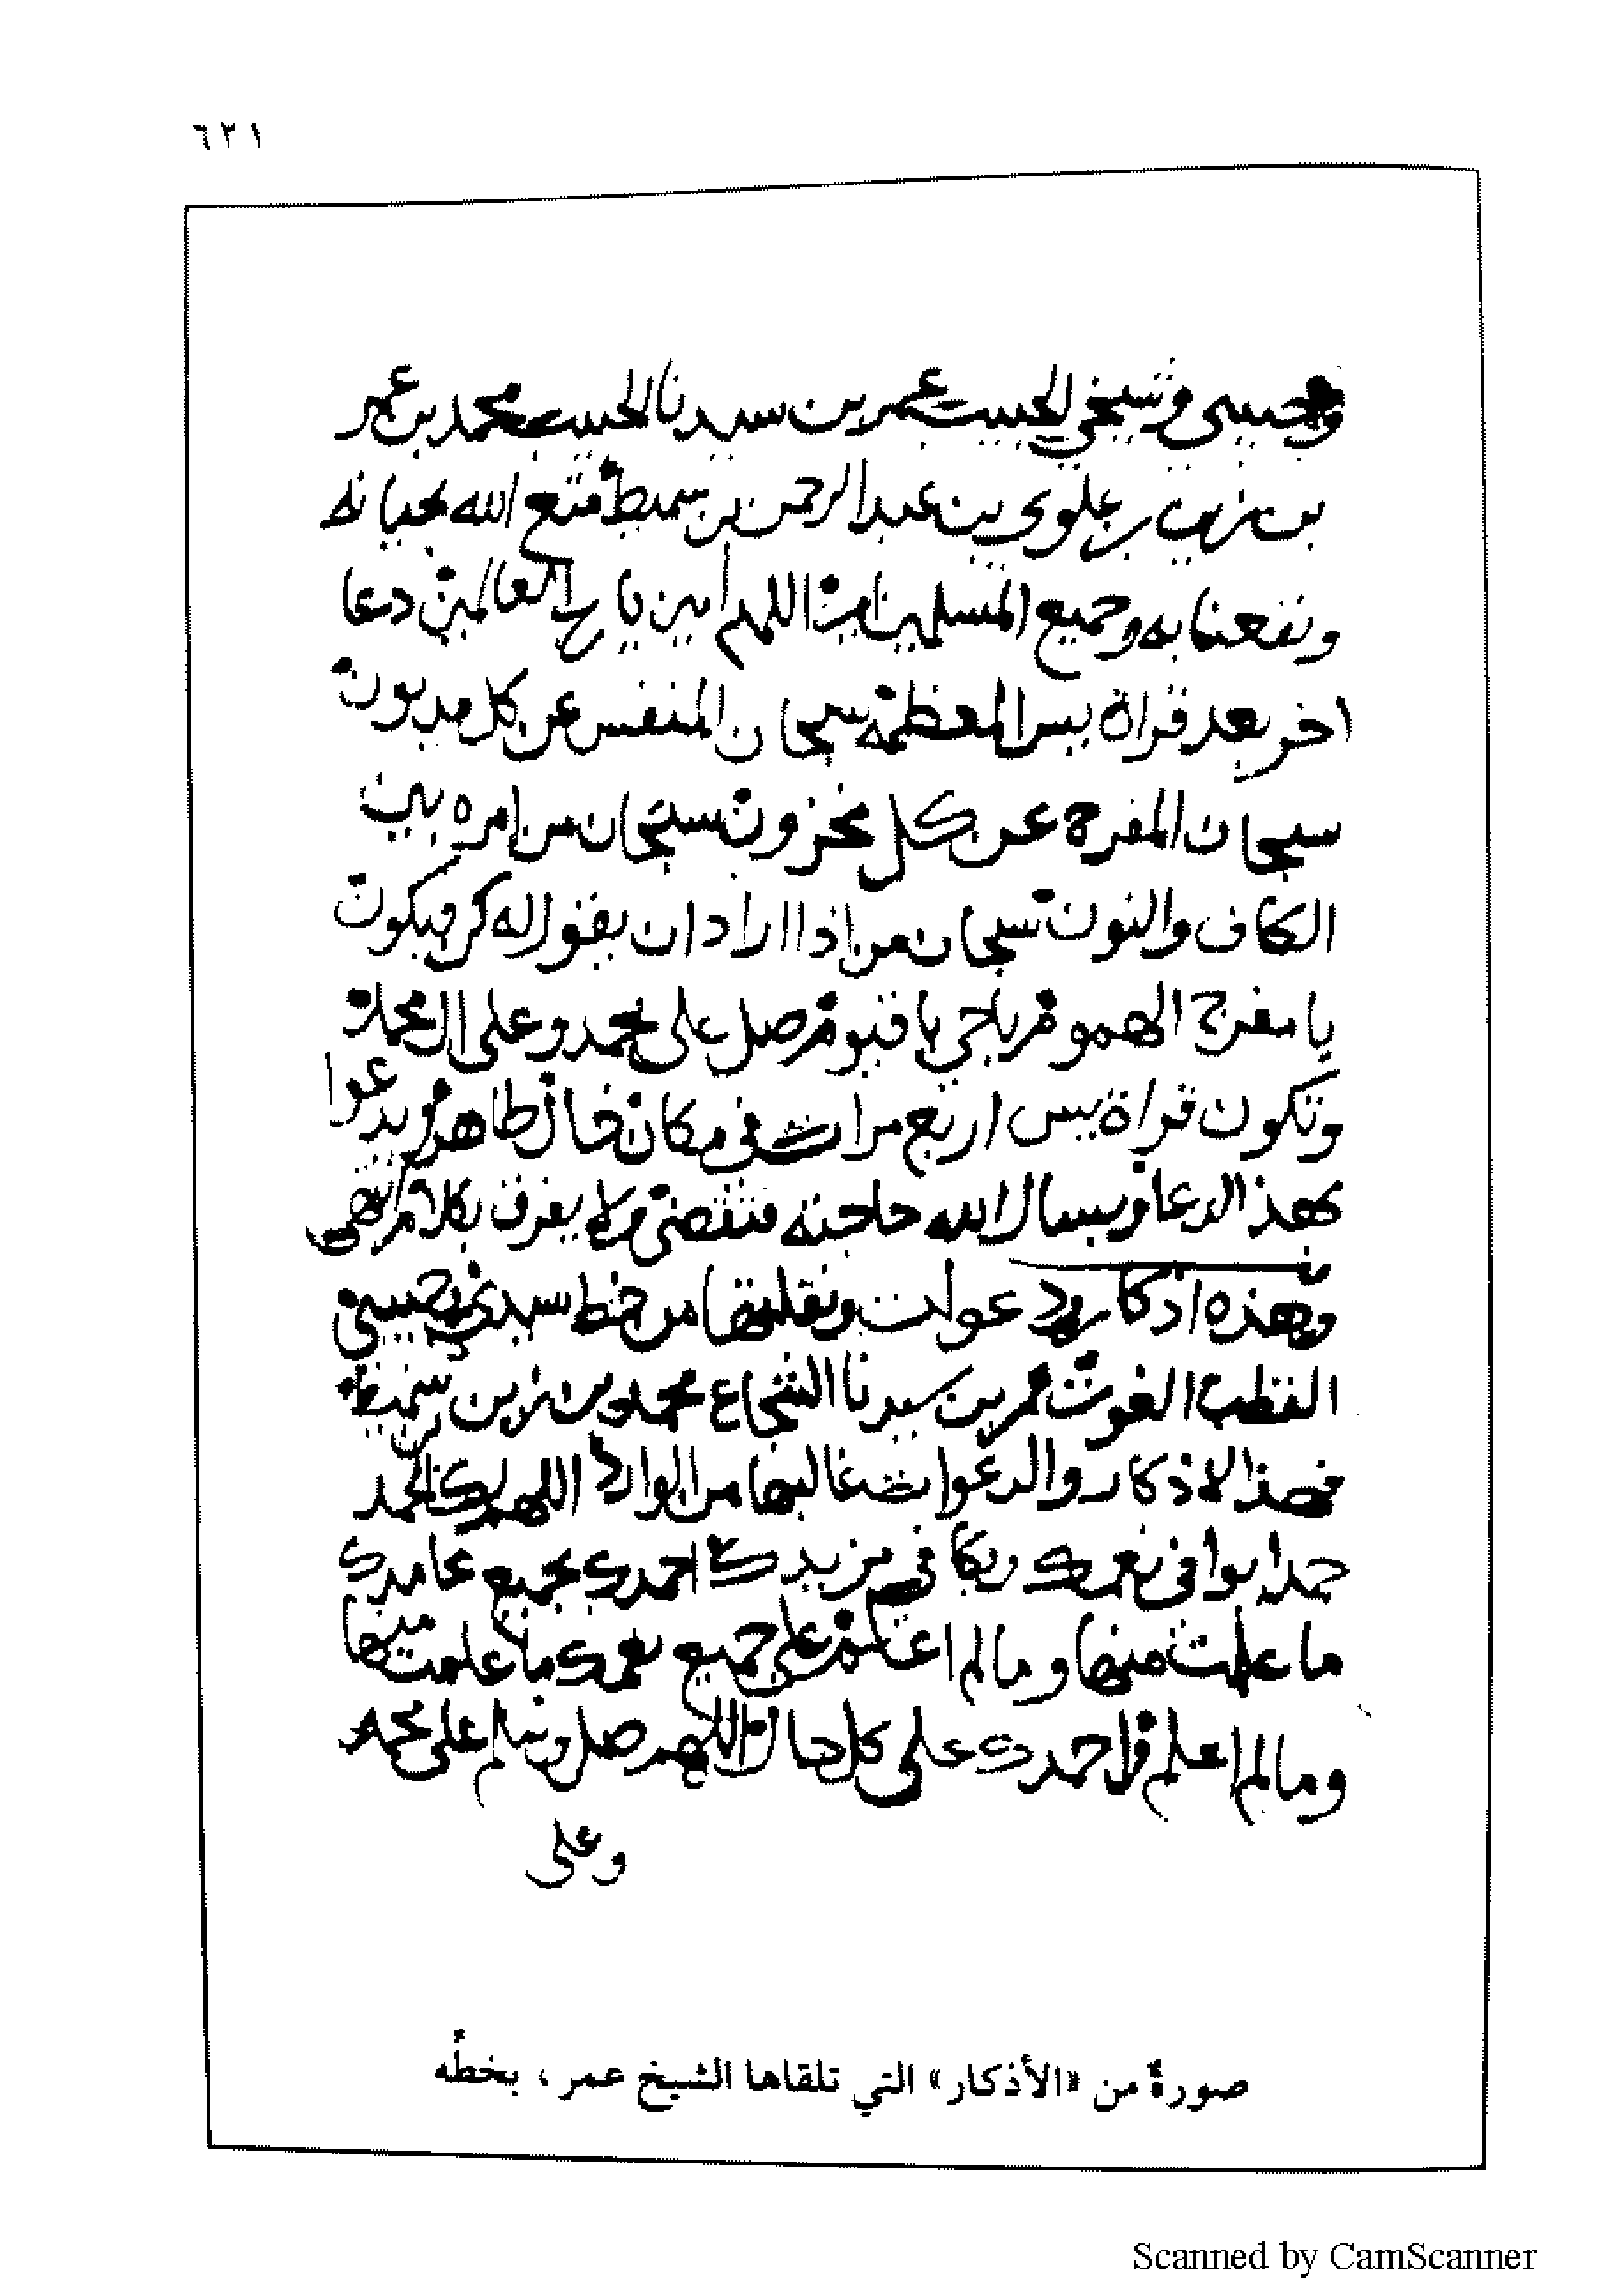 ٦٣١
وحبيبي وشيخي الحبيب عمر بن سيدنا الحبيب محمد بن عمر
بن زين بن علوي بن عبد الرحمن بن سميط متع الله بحياته
ونفعنا به وجميع المسلمين اللهم امين يا رب العالمين دعا
اخر بعد قراة يس المعظمة سبحان المنفس عن كل مديون
سبحان المفرج عن كل محزون سبحان من امره بين
الكاف والنون سبحان من اذا اراد ان يقول له كن فيكون
يا مفرج الهموم يا حي يا قيوم صل على محمد وعلى ال محمد
وتكون قراة يس اربع مرات في مكان خال طاهر ويدعوا
بهذا الدعا ويسال الله حاجته فتقضى ولا يفرق بكلام انتهى
وهذه اذكار ودعوات ونقلتها من خط سيدي وحبيبي
القطب الغوث عمر بن سيدنا الشجاع محمد بن زين بن سميط
فهذا الاذكار والدعوات غالبها من الوارد اللهم لك الحمد
حمدا يوافي نعمك ويكافي مزيدك احمدك بجميع محامدك
ما علمت منها وما لم اعلم على جميع نعمك ما علمت منها
وما لم اعلم احمدك على كل حال اللهم صل وسلم على محمد
وعلى
صورةٌ من «الأذكار» التي تلقاها الشيخ عمر، بخطّه
Scanned by CamScanner